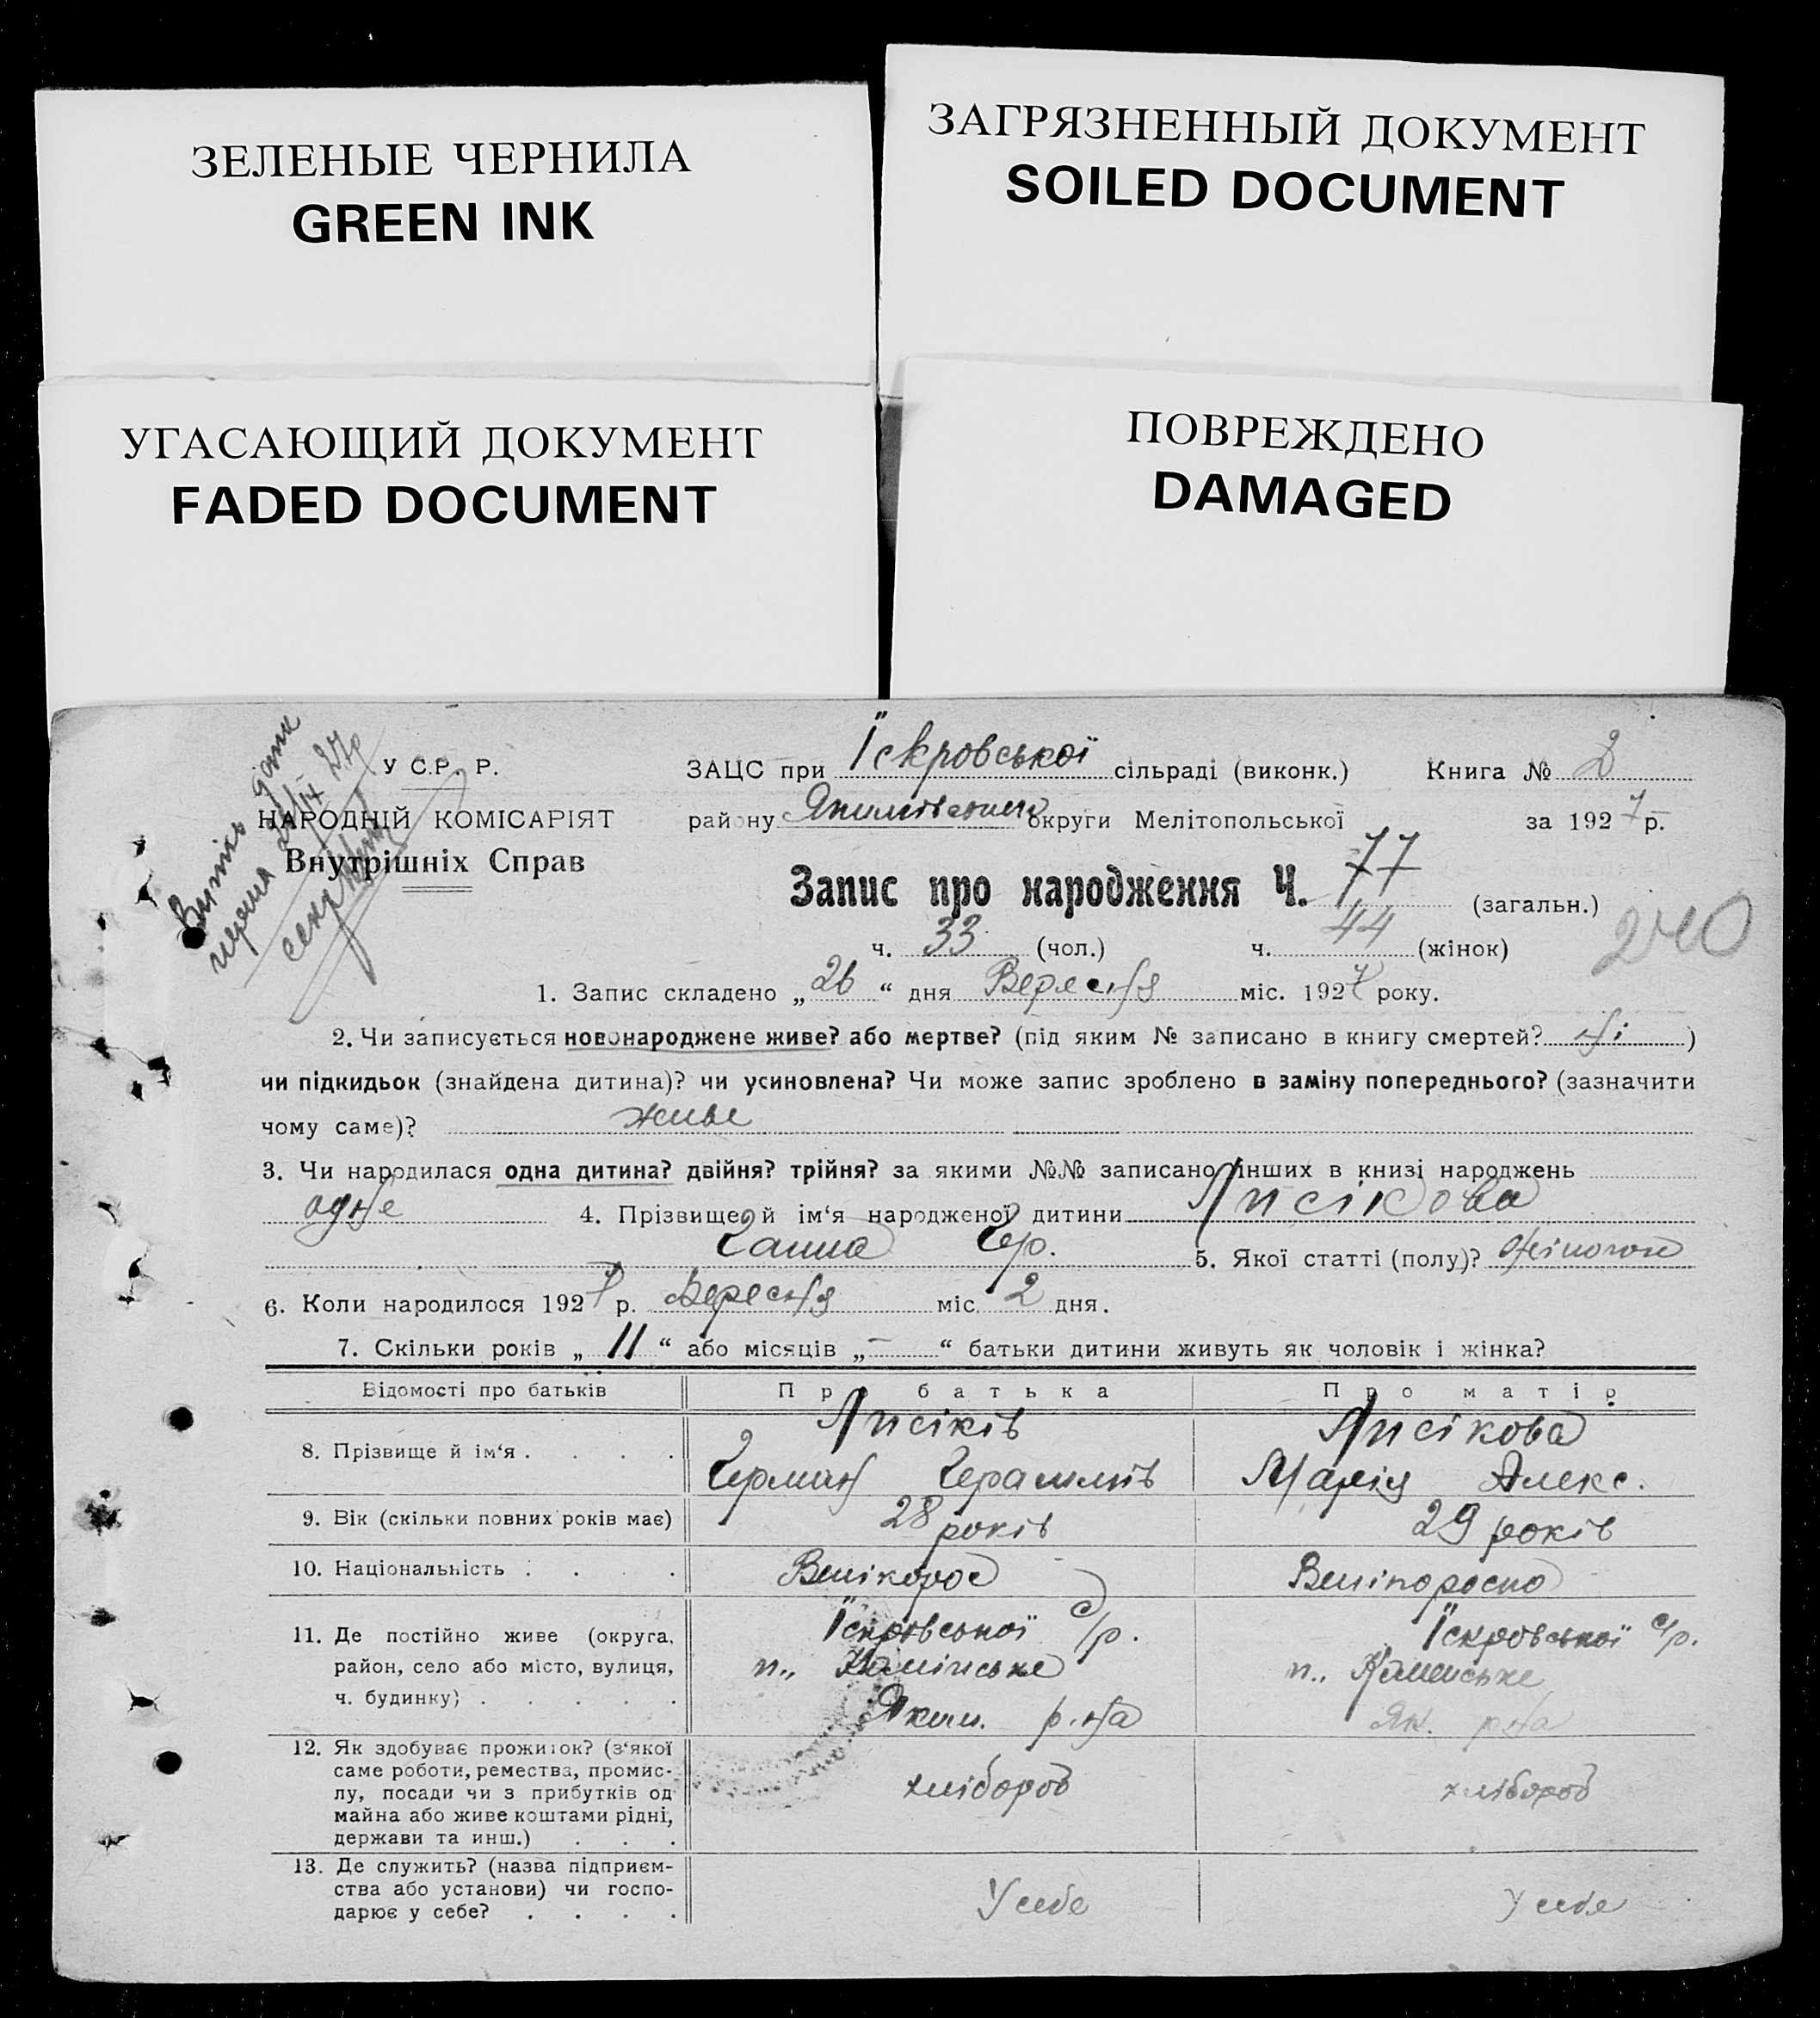 ЗЕЛЕНЫЕ ЧЕРНИЛА
GREEN INK
ЗАГРЯЗНЕННЫЙ ДОКУМЕНТ
SOILED DOCUMENT
УГАСАЮЩИЙ ДОКУМЕНТ
FADED DOCUMENT
ПОВРЕЖДЕНО
DAMAGED
У С.Р. Р.
НАРОДНІЙ КОМІСАРІЯТ
Внутрішніх Справ
ЗАЦС при Їскровської сільраді (виконк.) Книга № 2
району округи Мелітопольської за 1927 р.
Запис про народження Ч. 77 (загальн.)
240
ч. 33 (чол.) ч. 44 (жінок)
1. Запис складено „26“ дня Вересня міс. 1927 року.
2. Чи записується новонароджене живе? або мертве? (під яким № записано в книгу смертей? ні)
чи підкидьок (знайдена дитина)? чи усиновлена? Чи може запис зроблено в заміну попереднього? (зазначити
чому саме)? живе
3. Чи народилася одна дитина? двійня? трійня? за якими №№ записано інших в книзі народжень
одне 4. Прізвище й ім‘я народженої дитини Лисікова
Ганна Гер. 5. Якої статті (полу)? жіночої
6. Коли народилося 1927 р. Вересня міс. 2 дня.
7. Скільки років „11“ або місяців „—“ батьки дитини живуть як чоловік і жінка?
Відомості про батьків Про батька Про матір
8. Прізвище й ім‘я . . . . Лисіків Герман Лисікова Марія Алекс.
9. Вік (скільки повних років має) 28 років 29 років
10. Національність . . . . Велікорос Велікороска
11. Де постійно живе (округа, район, село або місто, вулиця, ч. будинку) . . . . . Їскровської с/р. п., Камінське Яким. р-на Їскровської с/р. п., Каменське Як. р-на
12. Як здобуває прожиток? (з‘якої саме роботи, ремества, промислу, посади чи з прибутків од майна або живе коштами рідні, держави та инш.) . . . хлібороб хлібороб
13. Де служить? (назва підприємства або установи) чи господарює у себе? . . . . У себе У себе